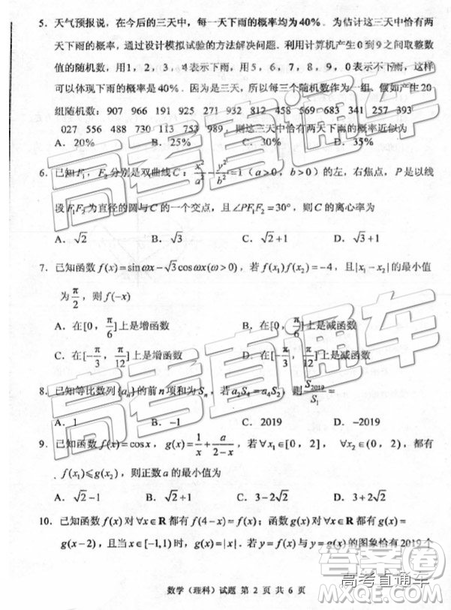 5. 天气预报说，在今后的三天中，每一天下雨的概率均为40%．为估计这三天中恰有两
天下雨的概率，通过设计模拟试验的方法解决问题．利用计算机产生0到9之间取整数
值的随机数，用1，2，3，4表示下雨，用5，6，7，8，9，0表示不下雨，这样
可以体现下雨的概率是40%．因为是三天，所以每三个随机数作为一组，假如产生20
组随机数：907 966 191 925 271 932 812 458 569 683 341 257 393
027 556 488 730 113 753 989，则这三天中恰有两天下雨的概率近似为
A．20% B．25% C．30% D．35%
6. 已知F₁，F₂分别是双曲线C：x²/a²-y²/b²=1（a>0，b>0）的左，右焦点，P是以线
段F₁F₂为直径的圆与C的一个交点，且∠PF₁F₂=30°，则C的离心率为
A．√2 B．√3 C．√2+1 D．√3+1
7. 已知函数f(x)=sinωx-√3cosωx(ω>0)，若f(x₁)f(x₂)=-4，且|x₁-x₂|的最小值
为π/2，则f(-x)
A．在[0，π/6]上是增函数 B．在[0，π/6]上是减函数
C．在[-π/3，π/12]上是增函数 D．在[-π/3，π/12]上是减函数
8. 已知等比数列{aₙ}的前n项和为Sₙ，若a₂S₄=a₄S₂，则S₂₀₁₉/S₁=
A．1 B．-1 C．2019 D．-2019
9. 已知函数f(x)=cosx，g(x)=1/x+a/(2-x)，若∀x₁∈[0，2]，∀x₂∈
f(x₁)≤g(x₂)，则正数a的最小值为
A．√2-1 B．√2+1 C．3-2√2 D．3+2√2
10. 已知函数f(x)对∀x∈R都有f(4-x)=f(x)；函数g(x)对∀x∈R都有g(x)=
g(x-2)，且当x∈[-1,1)时，g(x)=x．若f(x)与g(x)的图象恰有2019个
数学（理科）试题 第2页 共6页
高考直通车
高考直通车
高考直通车
高考直通车
答案圈